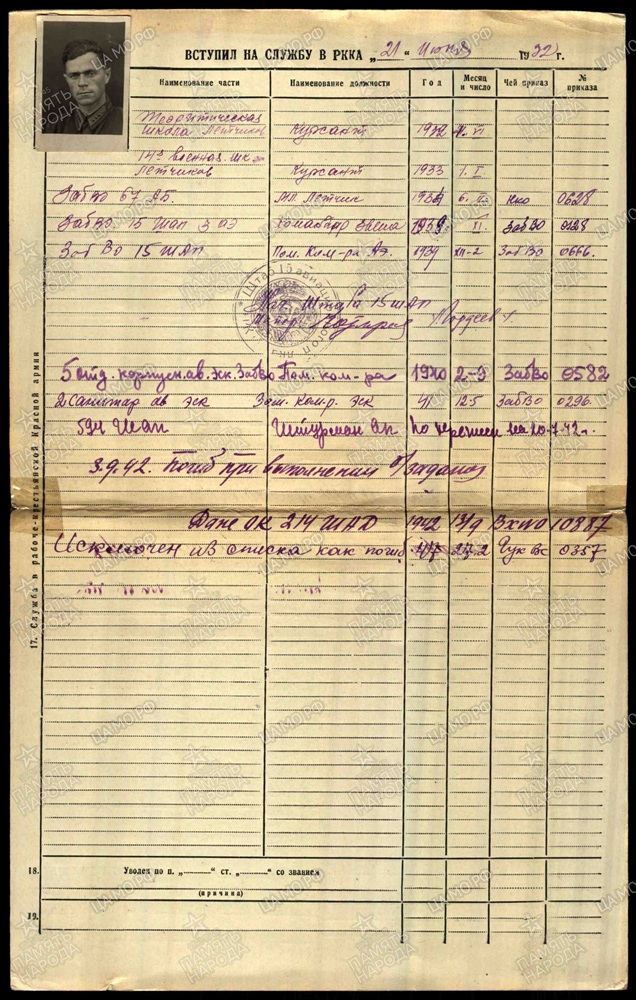 ВСТУПИЛ НА СЛУЖБУ В РККА „21“ Июня 1932 г.
Наименование части Наименование должности Год Месяц и число Чей приказ № приказа
Теоритическая
школа летчиков Курсант 1932 VI
14я военная шк
летчиков Курсант 1933 I
ЗабВО 67 АБ Мл. летчик 1934 6. НКО 0628
ЗабВО 15 ШАП 3 АЭ Командир звена 1939 II ЗабВО 0128
ЗабВО 15 ШАП Пом. Ком-ра АЭ. 1939 XII-2 ЗабВО 0666.
Нач. Штаба 15 ШАП
5 отд. корпусн. ав. эск. ЗабВО Пом. ком-ра 1940 2-9 ЗабВО 0582
2 Санитар ав эск Зам. Ком.р. Эск 41 12.5 ЗабВО 0296.
594 ШАП Штурман АП по на 20.7.42 г.
3.9.42. Погиб при выполнении б/задания
ОК 214 ШАД 1942 13/9 Вх № 10887
Исключен из списка как погиб. 47 27.2 ГУК ВС 0357
17. Служба в рабоче-крестьянской Красной армии
18. Уволен по п. „ “ ст. „ “ со званием
(причина)
19.
ПАМЯТЬ НАРОДА
ЦАМО.РФ